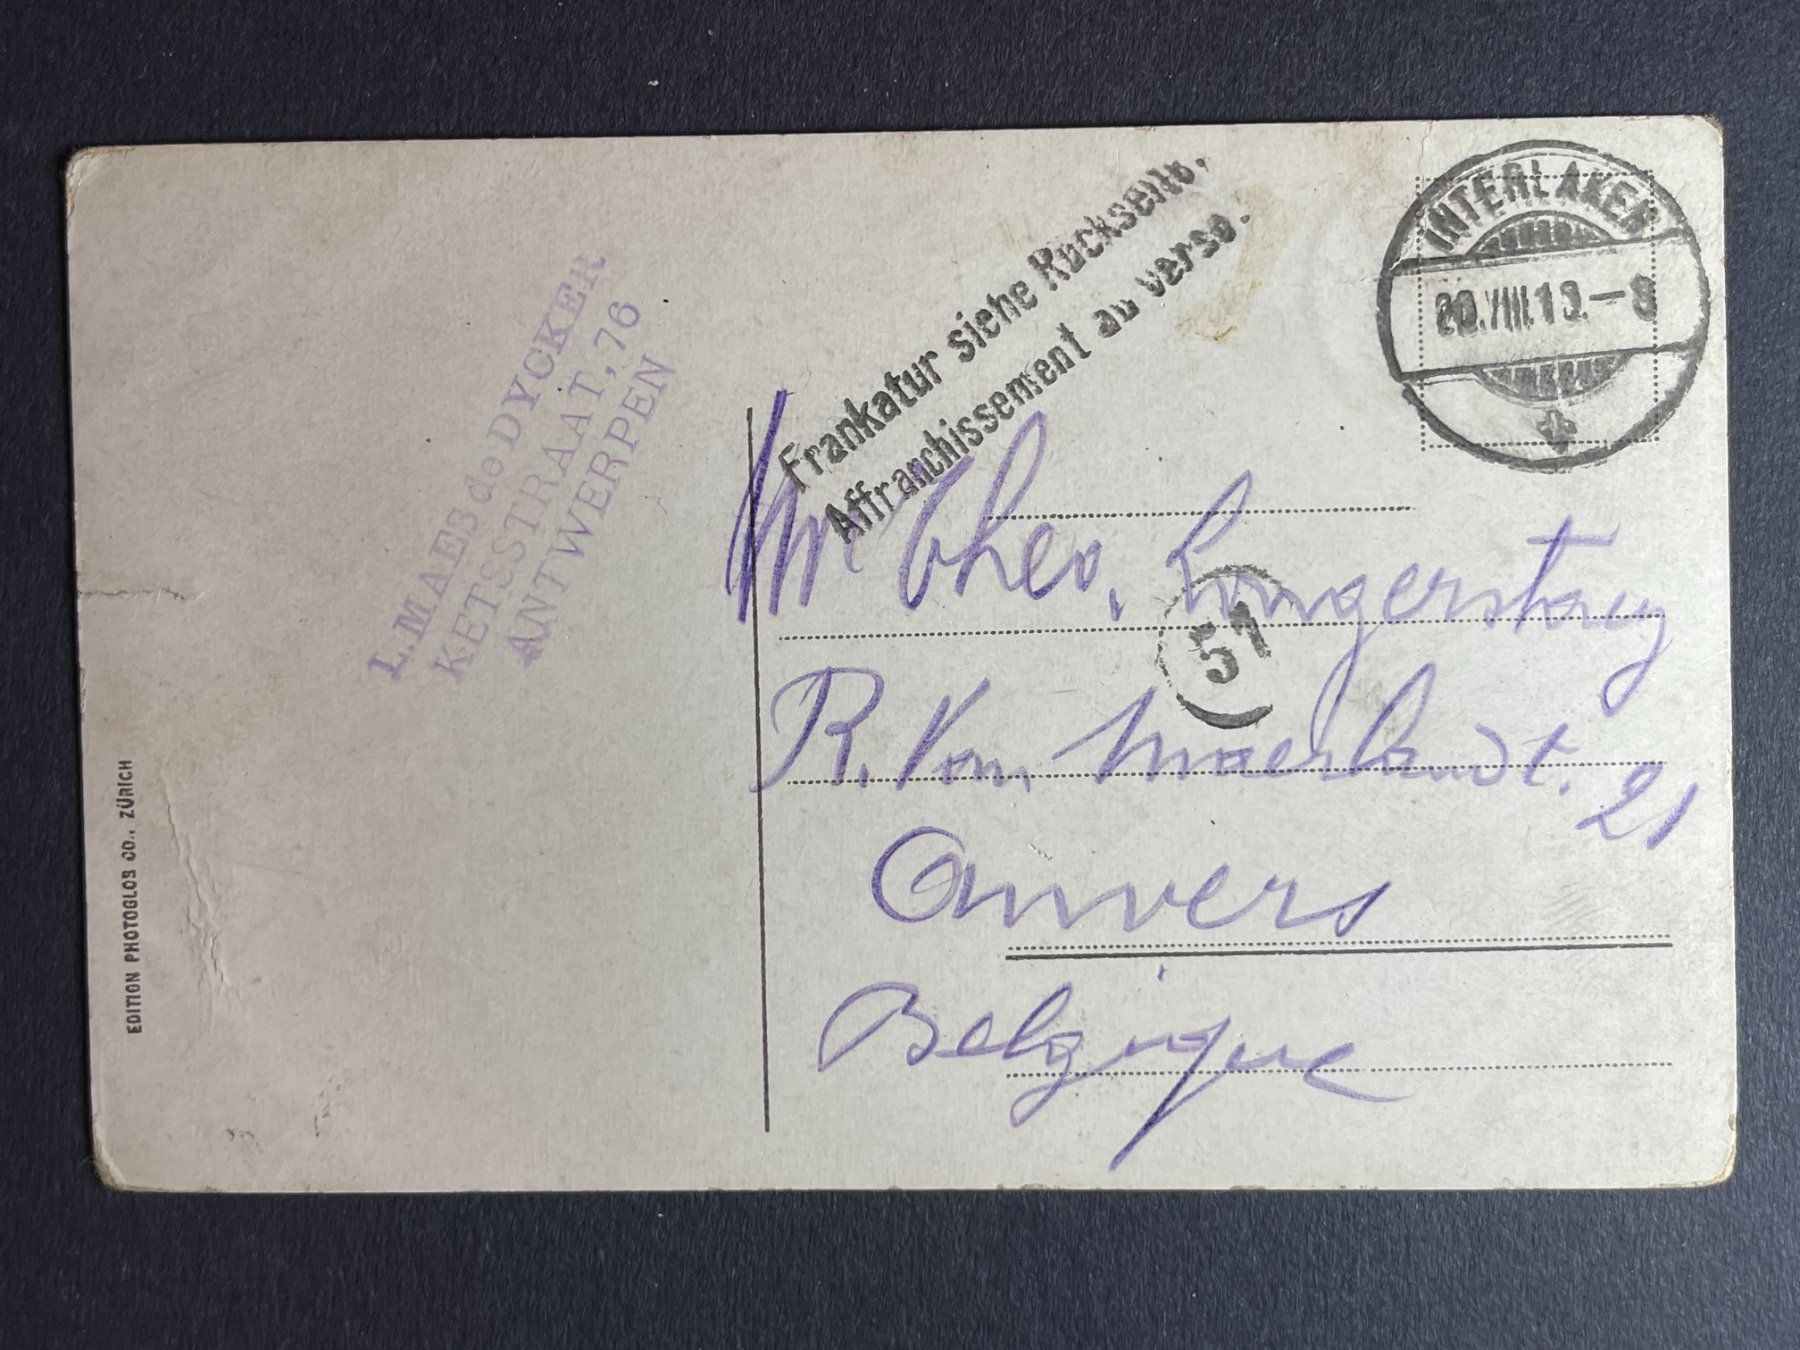 L. MAES de DYCKER
KETSSTRAAT, 76
ANTWERPEN
EDITION PHOTOGLOB CO., ZÜRICH
Frankatur siehe Rückseite.
Affranchissement au verso.
INTERLAKEN
20.VIII.13.-8
Mr Theo,
51
R. Van Maerlandt.
21
Anvers
Belgique